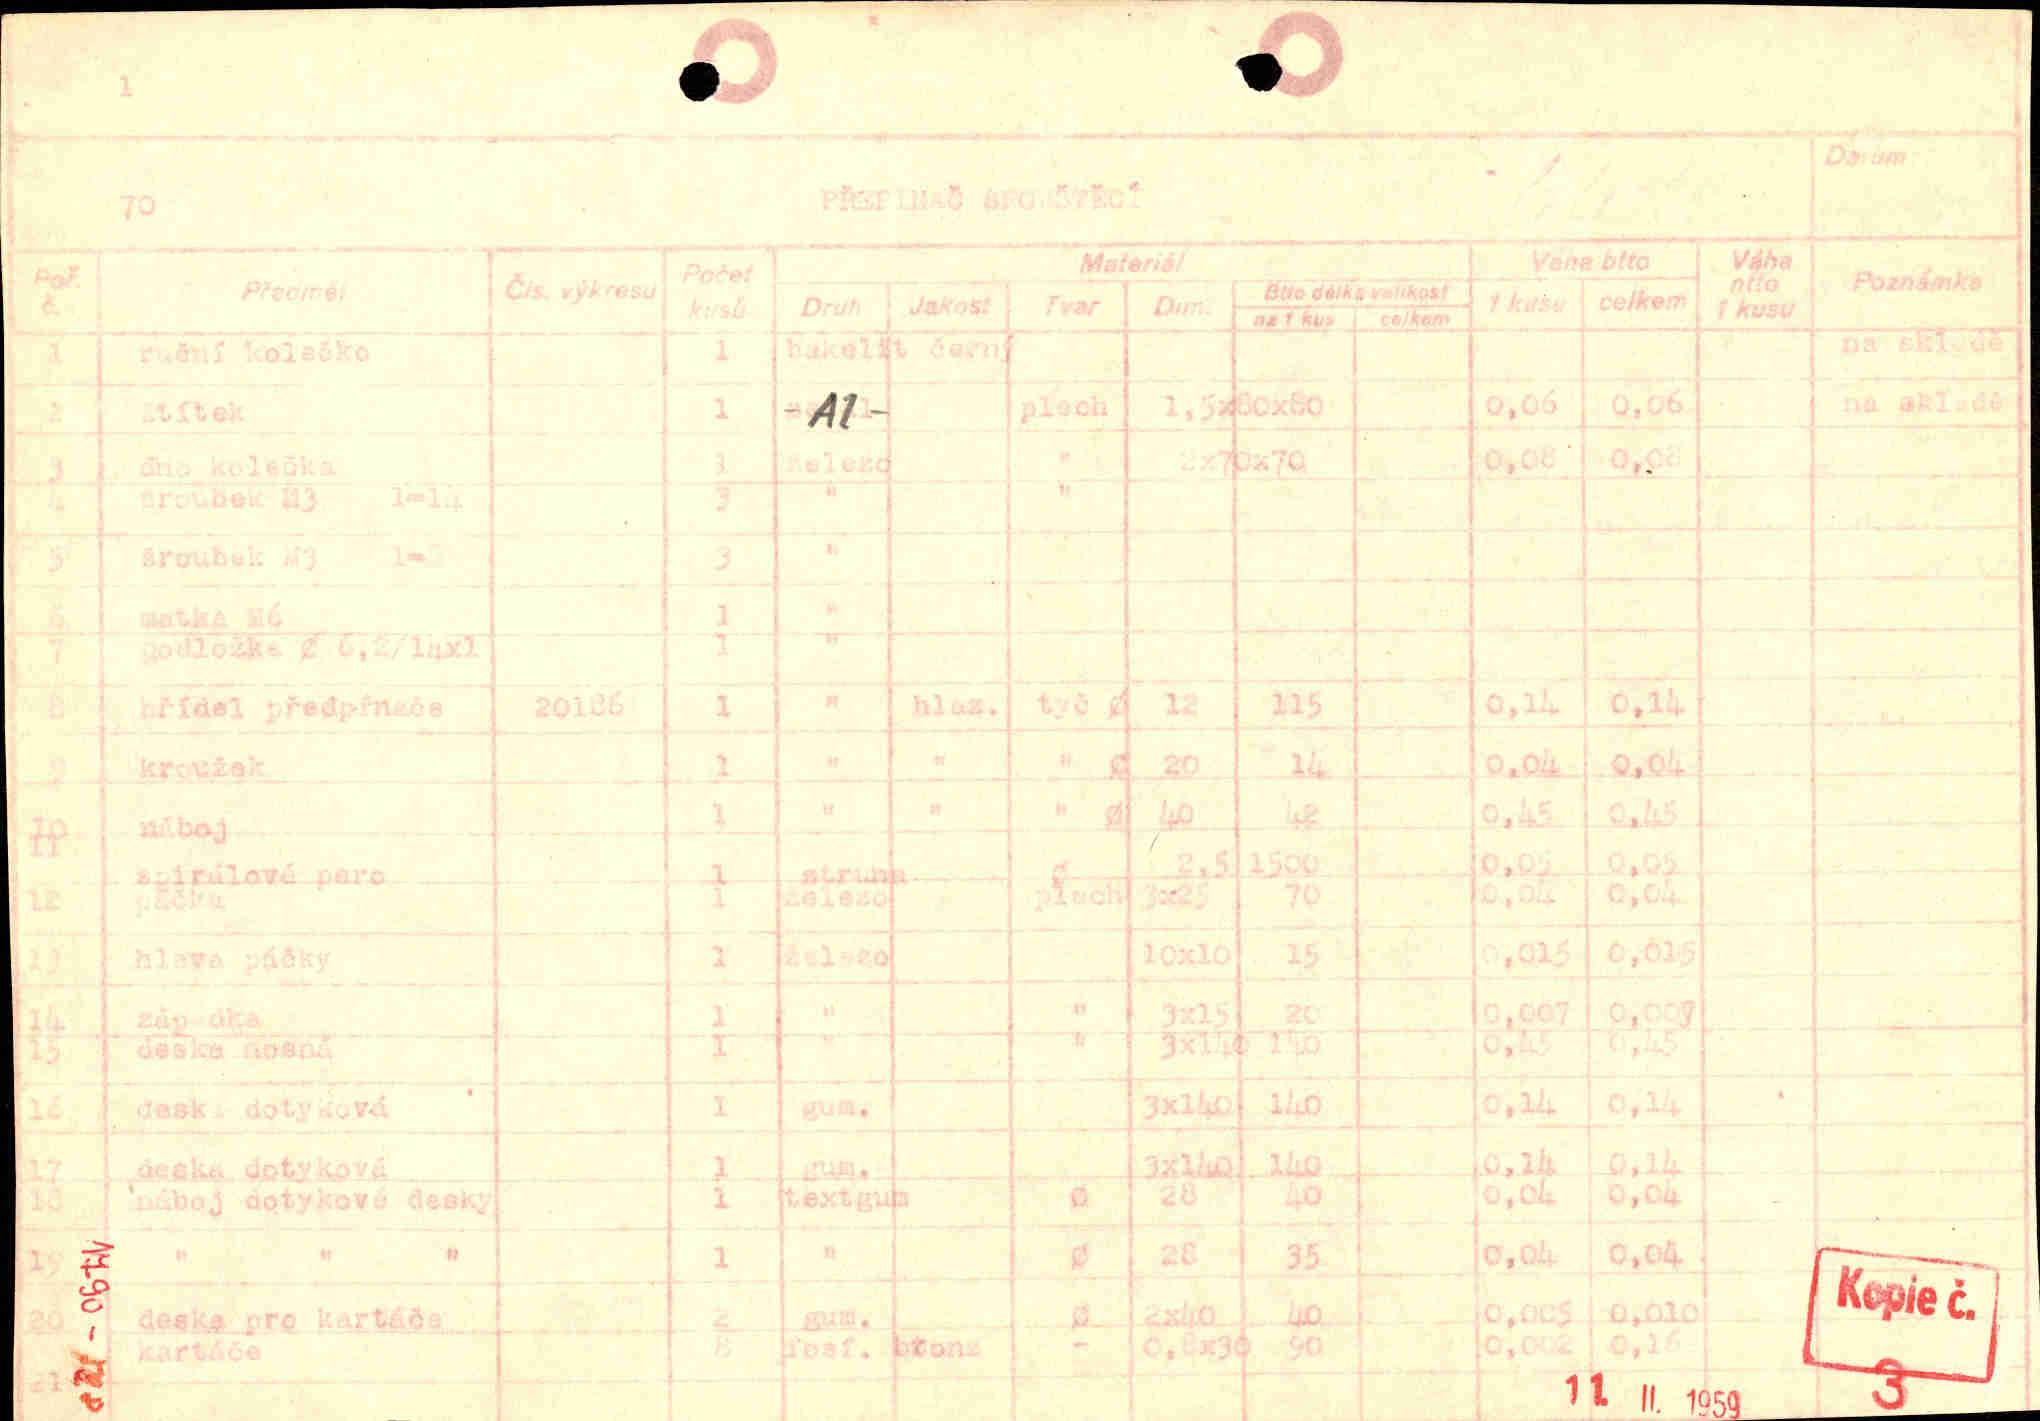 1
Datum
70 PŘEPINAČ SPOUŠTĚCÍ
Poř. č. Předmět Čís. výkresu Počet kusů Materiál Váha btto Váha ntto 1 kusu Poznámka
Druh Jakost Tvar Dim. Btto délka velikost 1 kusu celkem
na 1 kus celkem
1 ruční kolečko 1 bakelit černý na skladě
2 štítek 1 -Al- plech 1,5x80x80 0,06 0,06 na skladě
3 dno kolečka 1 železo " 2x70x70 0,08 0,08
4 šroubek M3 l=14 3 " "
5 šroubek M3 3 "
6 matka M6 1 "
7 podložka Ø 6,2/14x1 1 "
8 hřídel předpínače 20186 1 " hlaz. tyč Ø 12 115 0,14 0,14
9 kroužek 1 " " " Ø 20 14 0,04 0,04
10 náboj 1 " " " Ø 40 42 0,45 0,45
11 spirálové pero 1 struna Ø 2,5 1500 0,05 0,05
12 páčka 1 železo plech 3x25 70 0,04 0,04
13 hlava páčky 1 železo 10x10 15 0,015 0,015
14 západka 1 " " 3x15 20 0,007 0,007
15 deska nosná 1 " " 3x140 140 0,45 0,45
16 deska dotyková 1 gum. 3x140 140 0,14 0,14
17 deska dotyková 1 gum. 3x140 140 0,14 0,14
18 náboj dotykové desky 1 textgum Ø 28 40 0,04 0,04
19 " " " 1 " Ø 28 35 0,04 0,04
20 deska pro kartáče 2 gum. Ø 2x40 40 0,005 0,010
21 kartáče 8 fosf. bronz - 0,8x30 90 0,002 0,16
Kopie č.
3
11. II. 1959